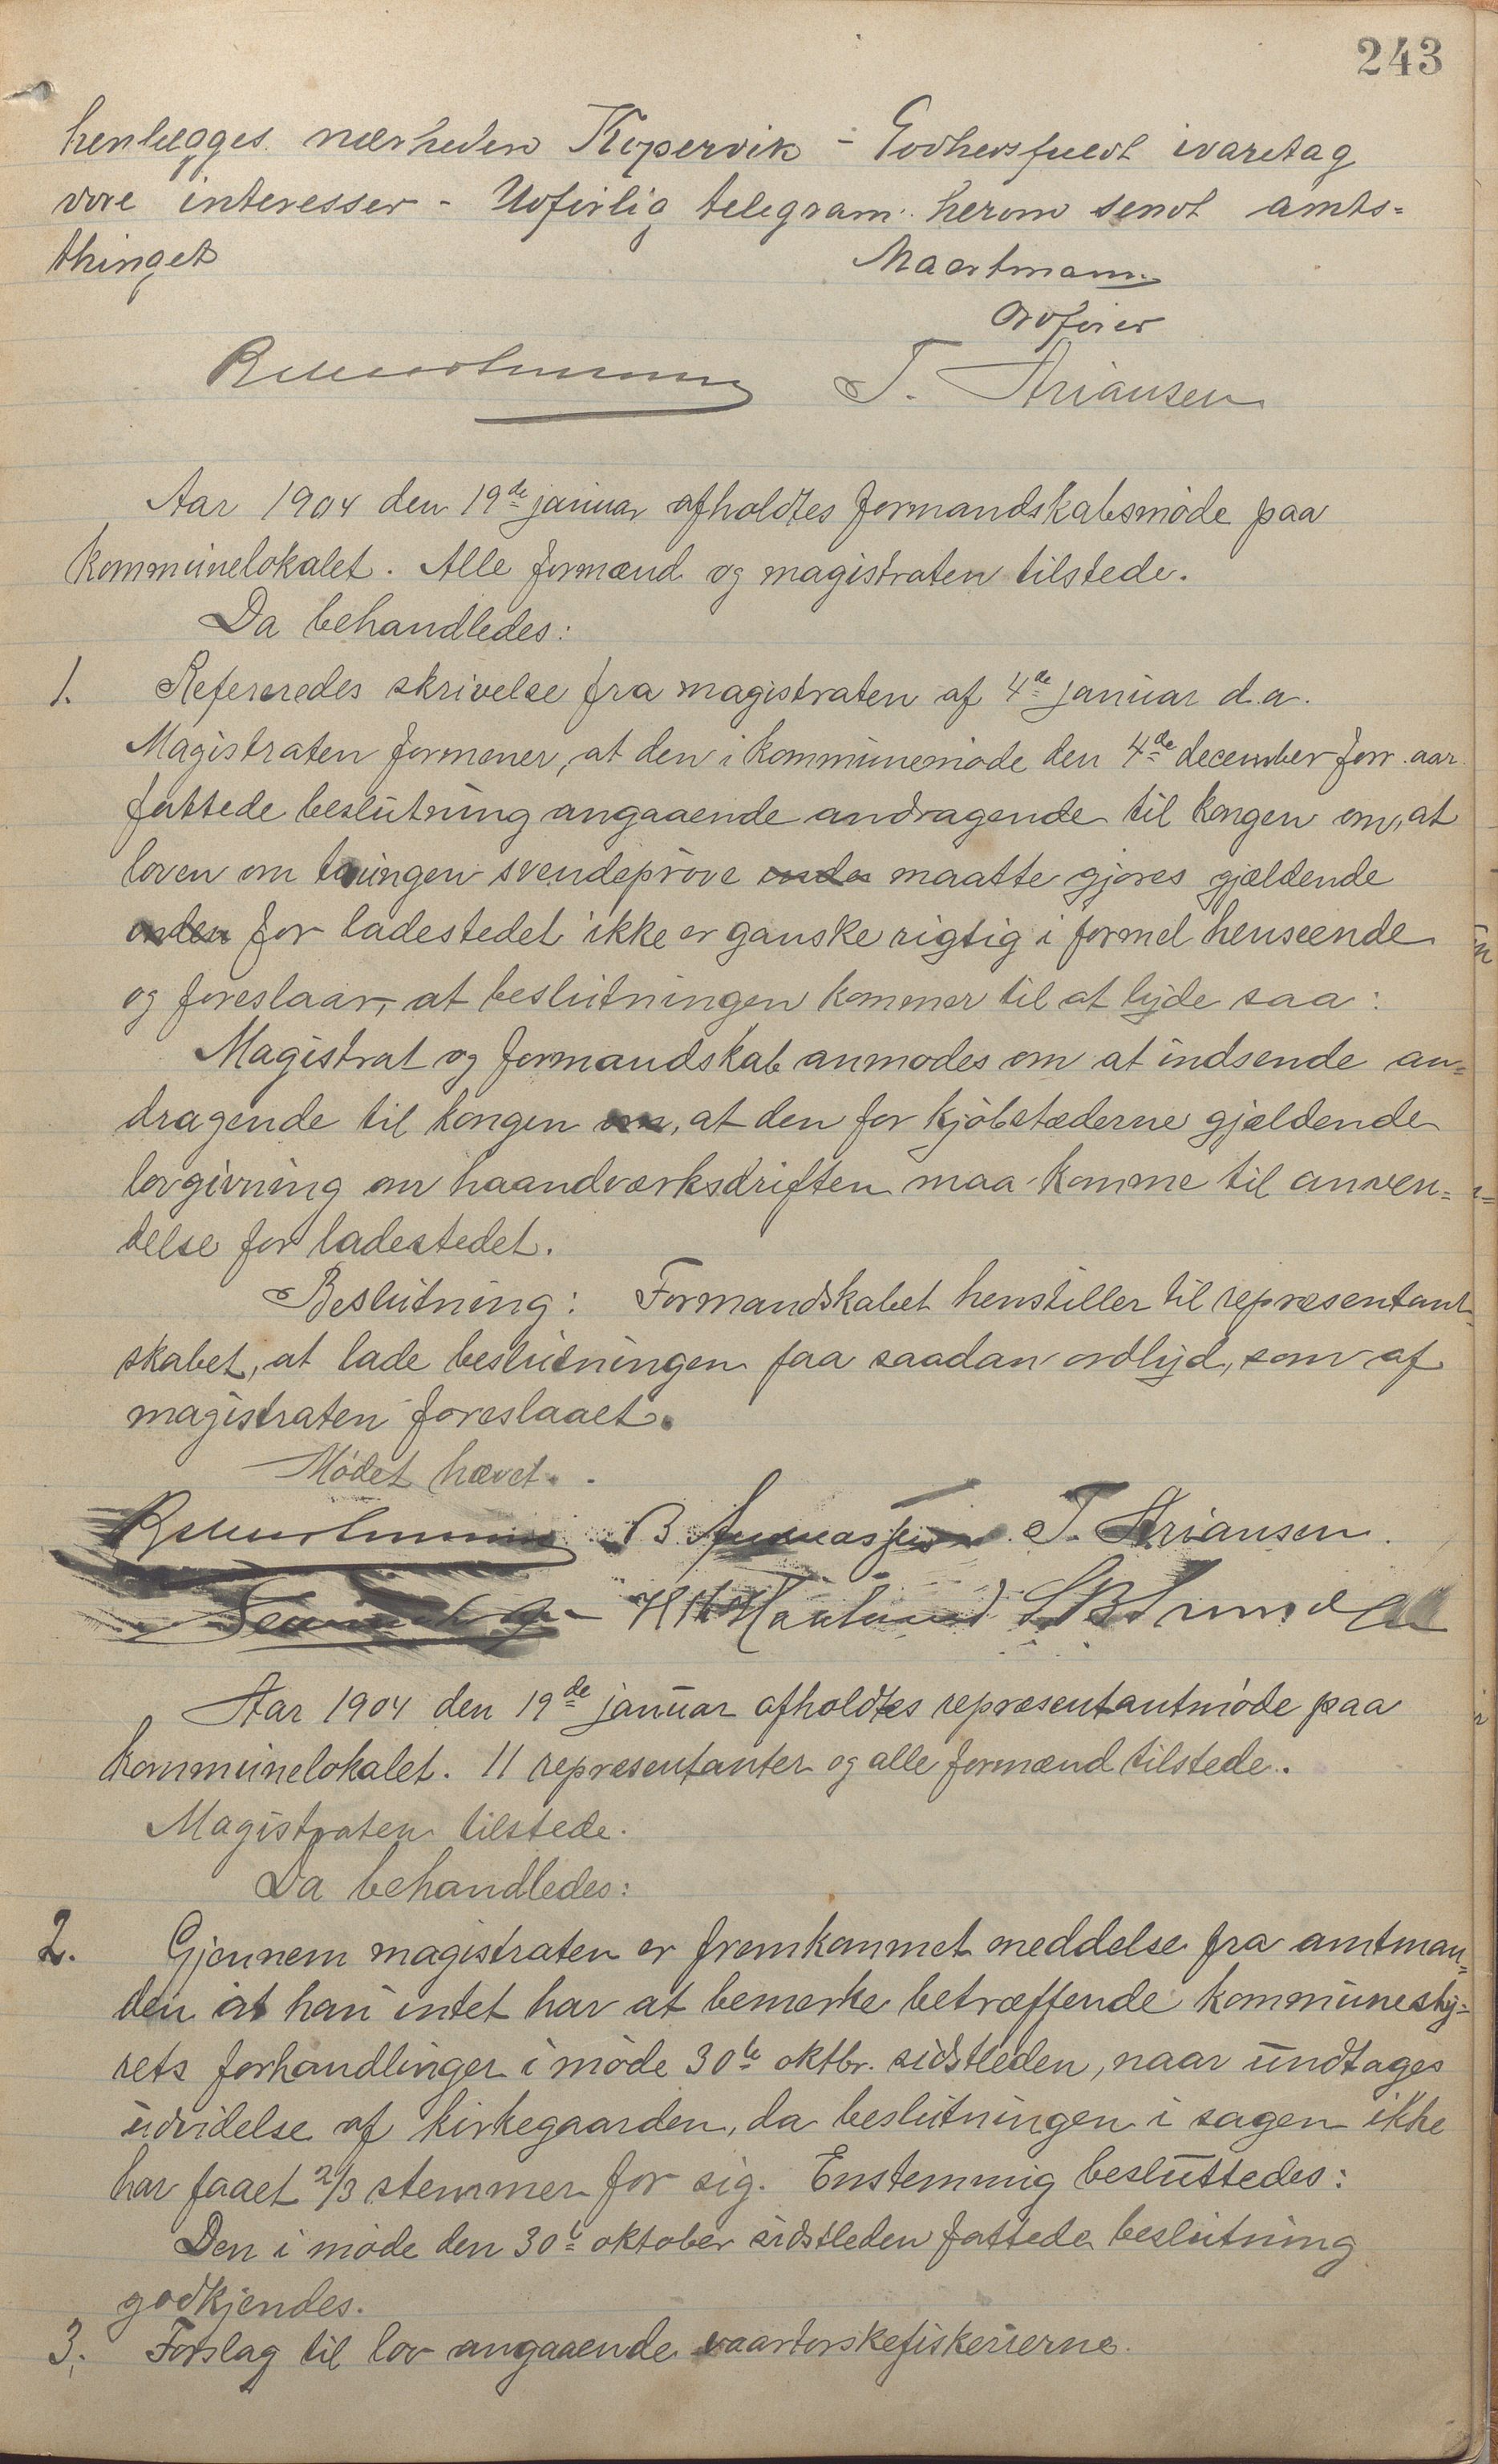 243
henlægges nærheden Kopervik - Godhedsfuldt ivaretag
vore interesser - Udførlig telegram herom sendt amts=
thinget
Maartmann
Ordfører
T. Ariansen
Aar 1904 den 19de januar afholdtes formandskabsmøde paa
kommunelokalet. Alle formænd og magistraten tilstede.
Da behandledes:
1. Refereredes skrivelse fra magistraten af 4de januar d.a.
Magistraten formener, at den i kommunemøde den 4de december forr. aar
fattede beslutning angaaende andragende til kongen om, at
loven om tvungen svendeprøve maatte gjøres gjældende
for ladestedet ikke er ganske rigtig i formel henseende
og foreslaar, at beslutningen kommer til at lyde saa:
Magistrat og formandskab anmodes om at indsende an=
dragende til kongen om, at den for kjøbstæderne gjældende
lovgivning om haandværksdriften maa komme til anven=
delse for ladestedet.
Beslutning: Formandskabet henstiller til repræsentant=
skabet, at lade beslutningen faa saadan ordlyd, som af
magistraten foreslaaet.
Mødet hævet.
B. Andreassen T. Ariansen.
Aar 1904 den 19de januar afholdtes repræsentantmøde paa
kommunelokalet. 11 repræsentanter og alle formænd tilstede.
Magistraten tilstede.
Da behandledes:
2. Gjennem magistraten er fremkommet meddelse fra amtman=
den at han intet har at bemerke betræffende kommunesty=
rets forhandlinger i møde 30te oktbr. sidstleden, naar undtages
udvidelse af kirkegaarden, da beslutningen i sagen ikke
har faaet 2/3 stemmer for sig. Enstemmig besluttedes:
Den i møde den 30te oktober sidstleden fattede beslutning
godkjendes.
3. Forslag til lov angaaende vaartorskefiskerierne.